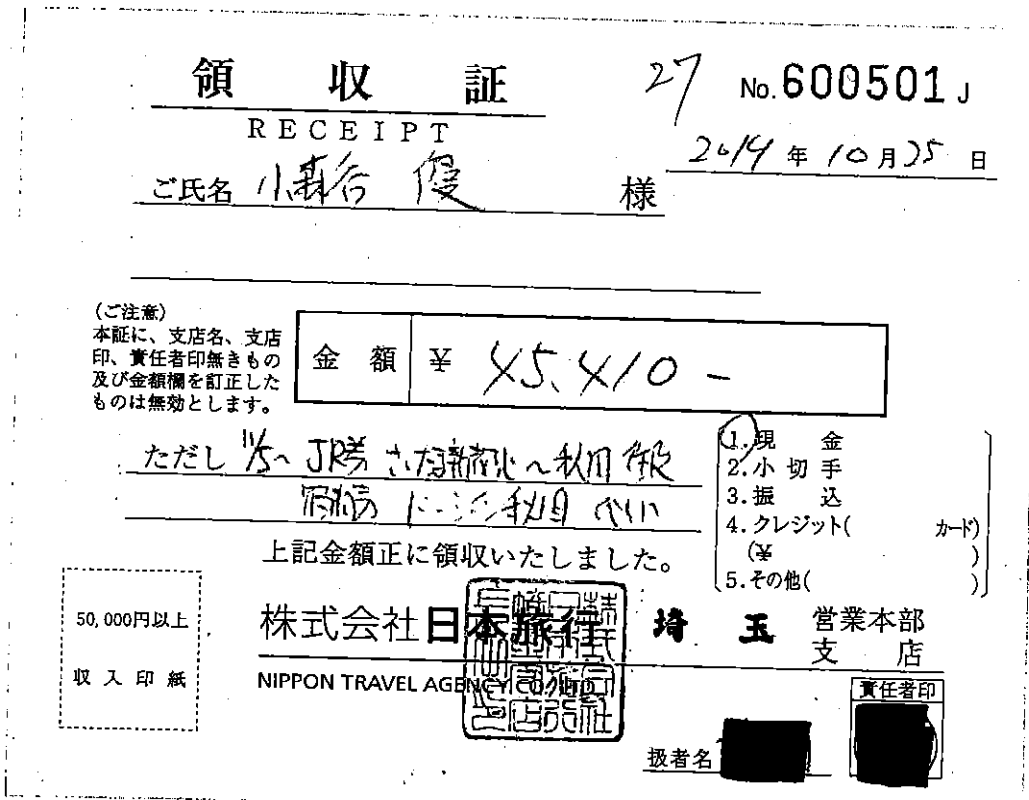 領収証
27 No.600501J
RECEIPT
2019年10月25日
ご氏名 小森谷 優 様
(ご注意)
本証に、支店名、支店
印、責任者印無きもの
及び金額欄を訂正した
ものは無効とします。
金額 ¥ 45,410-
ただし 11/5~ JR券 さいたま新都心~秋田 往復
1.現金
2.小切手
3.振込
4.クレジット( カード)
(¥ )
5.その他( )
上記金額正に領収いたしました。
50,000円以上
収入印紙
株式会社日本旅行 埼玉 営業本部
支店
NIPPON TRAVEL AGENCY CO.,LTD.
責任者印
扱者名